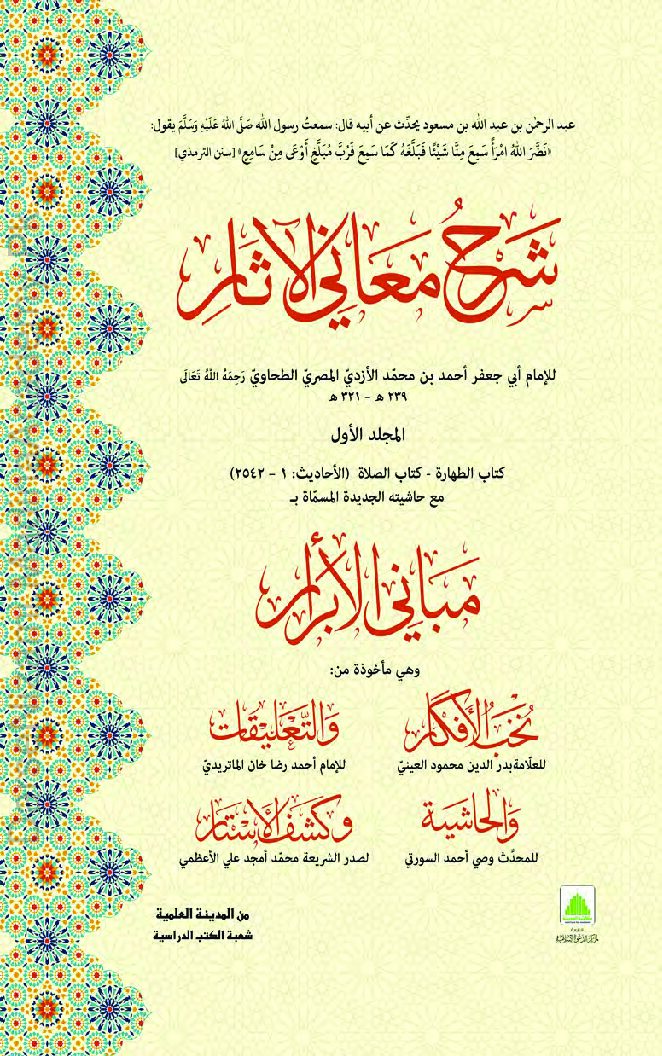 عبد الرحمٰن بن عبد الله بن مسعود يحدّث عن أبيه قال: سمعتُ رسول الله صَلَّ اللهُ عَلَيهِ وَسَلَّمَ يقول:
«نَضَّرَ اللهُ امْرَأً سَمِعَ مِنَّا شَيْئًا فَبَلَّغَهُ كَمَا سَمِعَ فَرُبَّ مُبَلَّغٍ أَوْعَى مِنْ سَامِعٍ» [سنن الترمذي]
شَرْحُ مَعَانِي الْآثَارِ
للإمام أبي جعفر أحمد بن محمّد الأزديّ المصريّ الطحاويّ رَحِمَهُ اللهُ تَعَالَى
٢٣٩ ﻫ - ٣٢١ ﻫ
المجلد الأول
كتاب الطهارة - كتاب الصلاة (الأحاديث: ١ - ٢٥٤٢)
مع حاشيته الجديدة المسمّاة بـ
مَبَانِي الْأَبْرَارِ
وهي مأخوذة من:
نُخَبُ الْأَفْكَارِ وَالتَّعْلِيقَاتُ
للعلّامة بدر الدين محمود العينيّ للإمام أحمد رضا خان الماتريديّ
وَالْحَاشِيَةُ وَكَشْفُ الْأَسْتَارِ
للمحدّث وصي أحمد السورتي لصدر الشريعة محمّد أمجد علي الأعظمي
من المدينة العلمية
شعبة الكتب الدراسية